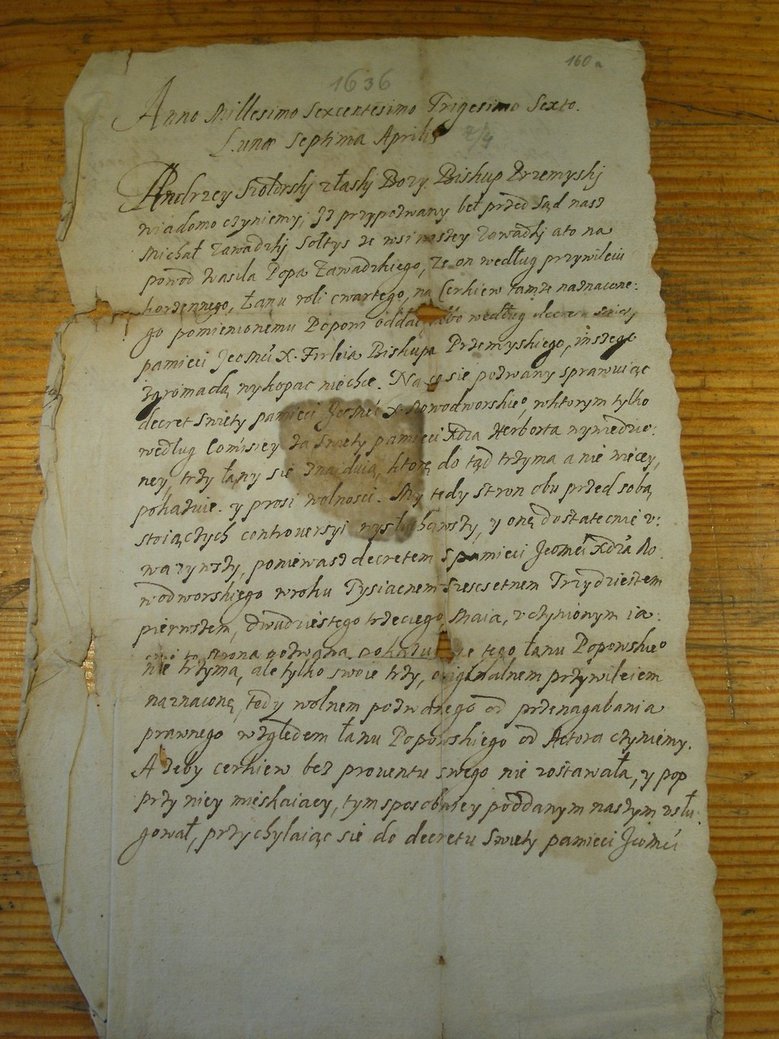 160 a
1636
Anno Millesimo Sexcentesimo Trigesimo Sexto.
Lunae Septima Aprilis 7/4
Andrzey Szołdrsky złasky Bozy Biskup Przemysky
wiadomo czyniemy, Iz przypozwany beł przed sąd nasz
Michał Zawadzky Sołtys ze wsi naszey Zawadky ato na
powod Wasila Popa Zawadzkiego, ze on według przywileiu
łanu roli czwartego, na Cerkiew tamze naznaczone-
go pomienionemu Popowi oddać, albo według
pamięci Jeomći X. Firleia Biskupa Przemyskiego, inszego
zgromadą wykopać niechce. Na co sie pozwany sprawuiąc
decret Swięty pamięci Jeomći X. Nowodworskieo, wktorym tylko
według Comisiey za Swięty pamięci Xdza Herborta wywiedzio-
ney, trzy łany się znayduią, ktore do tąd trzyma a nie więcey,
pokazuie. y prosi wolnosci. My tedy stron obu przed sobą
stoiączych controuersyi wysłuchawszy, y onę dostatecznie v-
wazywszy, poniewasz decretem s pamieci Jeomći Xdza No-
wodworskiego wroku Tysiącnem Szescsetnem Trzydziestem
pierwszem, dwudziestego trzeciego Maia, vczynionym
strona pozwana pokazuie tego łanu Popowskieo
nie trzyma, ale tylko swoie trzy, originalnem przywileiem
naznaczone, tedy wolnem pozwanego od przenagabania
prawnego względem łanu Popowskiego od Actora czyniemy.
A zeby cerkiew bez prouentu swego nie zostawała, y pop
przy niey mieskaiący, tym sposobniey poddanym naszym vsłu-
gował, przychylaiąc się do decretu Swięty pamięci Jeomći